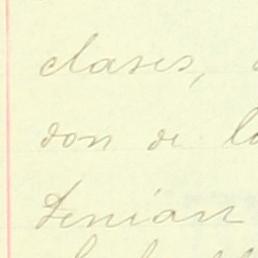 clases,
don de l
tenian